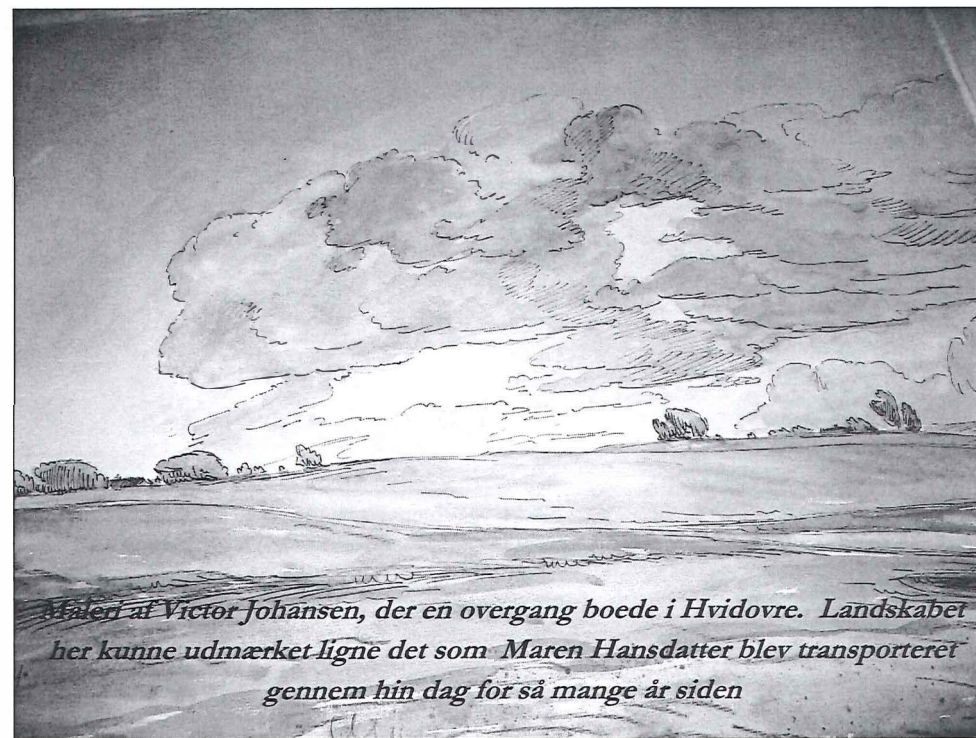 Maleri af Victor Johansen, der en overgang boede i Hvidovre. Landskabet
her kunne udmærket ligne det som Maren Hansdatter blev transporteret
gennem hin dag for så mange år siden